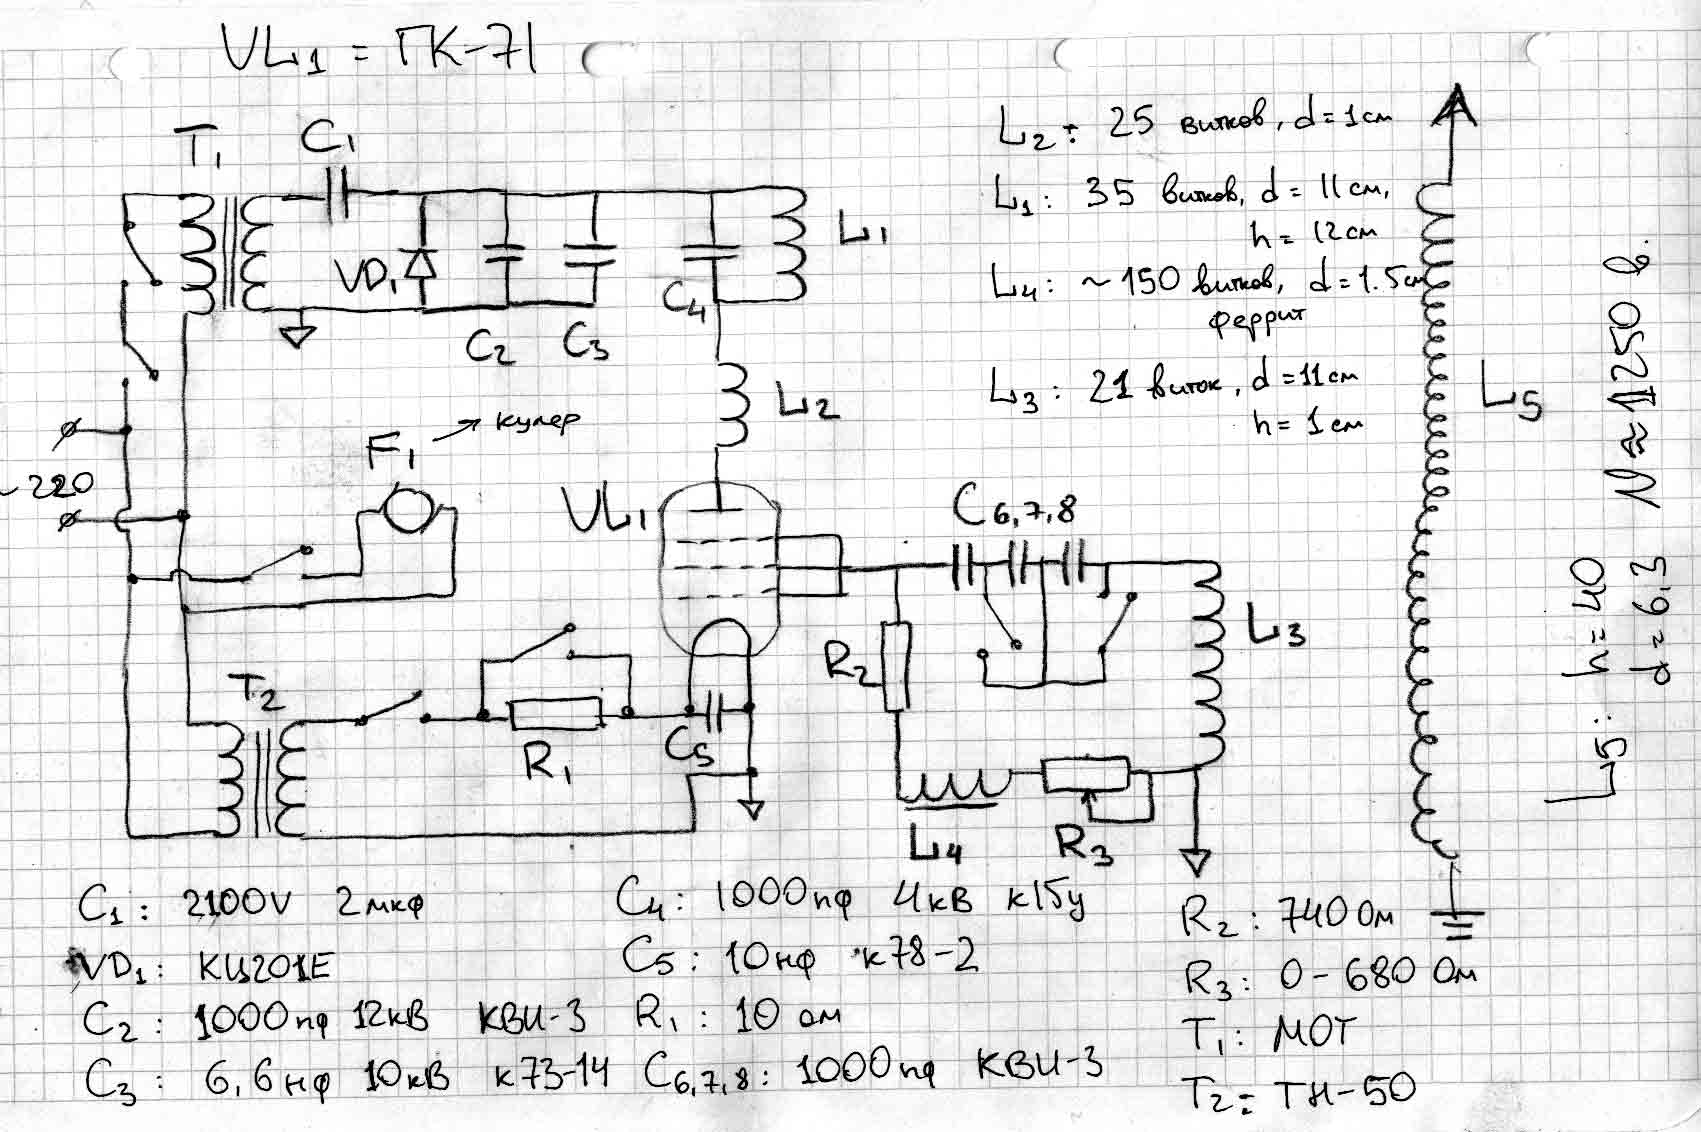 VL1 = ГК-71
T1
C1
L2: 25 витков, d=1см
L1: 35 витков, d=11см,
h=12см
L4: ~150 витков, d=1.5см
феррит
L3: 21 виток, d=11см
h=1см
VD1
C2
C3
C4
L1
L2
F1 → кулер
~220
VL1
C6,7,8
L3
L5
L5: h=40 N≈1250 в.
d=6,3
T2
R1
C5
R2
L4
R3
C1: 2100V 2мкф
VD1: КЦ201Е
C2: 1000пф 12кВ КВИ-3
C3: 6,6нф 10кВ к73-14
C4: 1000пф 4кВ к15у
C5: 10нф к78-2
R1: 10 ом
C6,7,8: 1000пф КВИ-3
R2: 740 Ом
R3: 0-680 Ом
T1: МОТ
T2= ТН-50